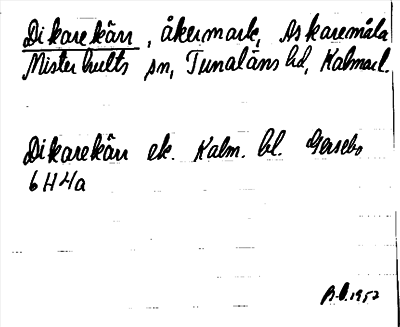 Dikarekärr, åkermark, Askaremåla
Misterhults sn, Tunaläns hd, Kalmarl.
Dikarekärr ek. Kalm. bl. Gersebo
6H4a
B.O. 1952